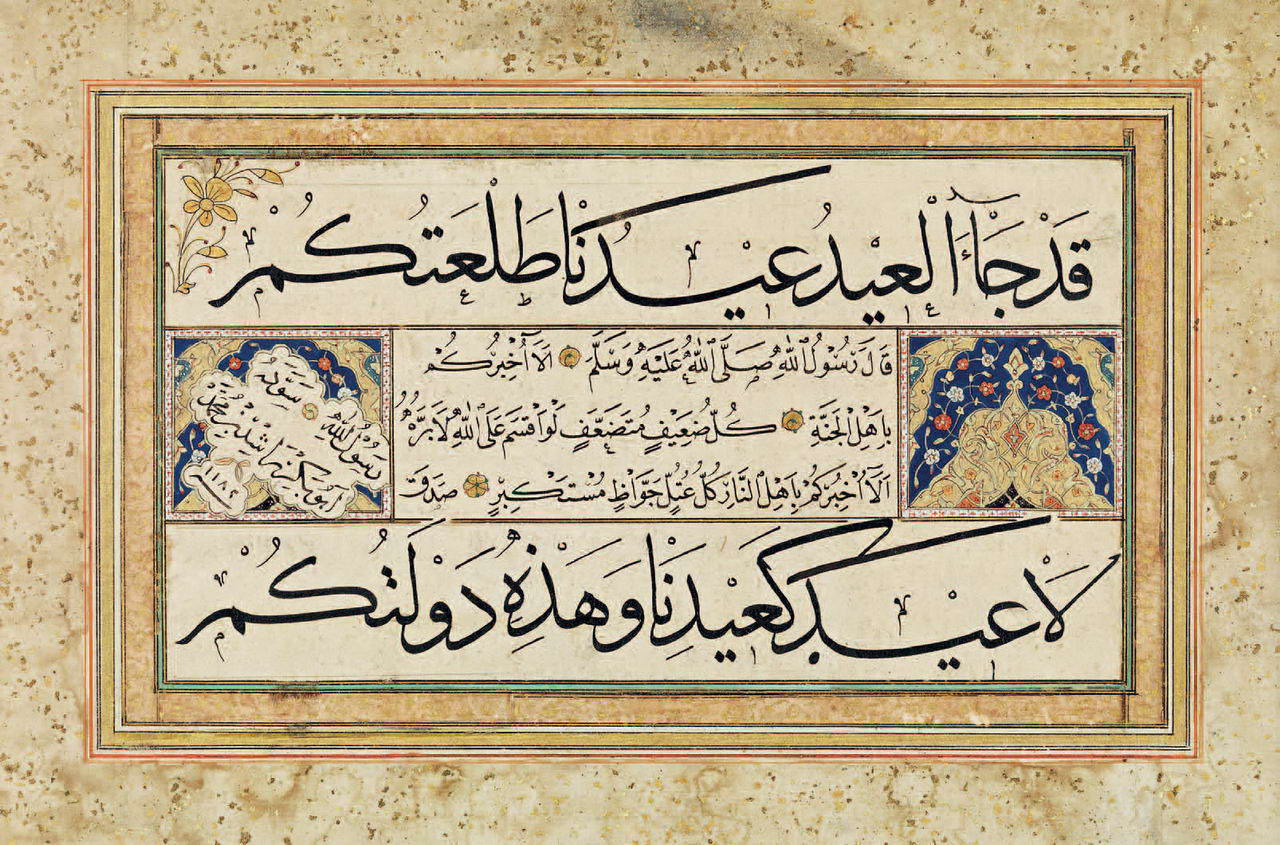 قَدْ جَاءَ الْعِيْدُ عِيْدُنَا طَلْعَتُكُمْ
قَالَ رَسُوْلُ اللّٰهِ صَلَّى اللّٰهُ عَلَيْهِ وَسَلَّمَ اَلَا اُخْبِرُكُمْ
بِاَهْلِ الْجَنَّةِ كُلُّ ضَعِيْفٍ مُتَضَعَّفٍ لَوْ اَقْسَمَ عَلَى اللّٰهِ لَاَبَرَّهُ
اَلَا اُخْبِرُكُمْ بِاَهْلِ النَّارِ كُلُّ عُتُلٍّ جَوَّاظٍ مُسْتَكْبِرٍ صدق
رسول الله
سوّده
ابوبكر راشد
١١٨٢
لَا عِيْدَ كَعِيْدِنَا وَهَذِهِ دَوْلَتُكُمْ